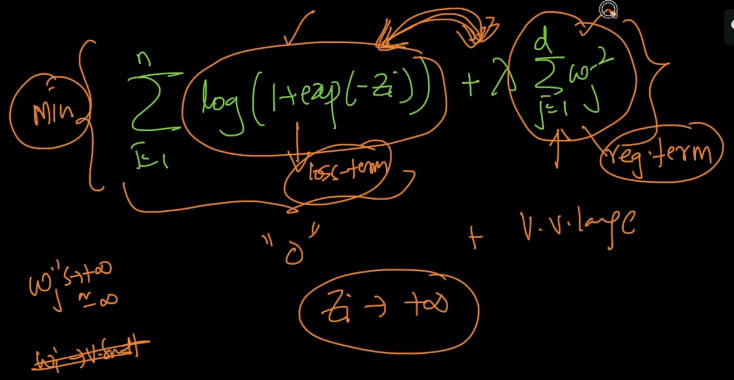 Min { Σ_{i=1}^{n} log(1+exp(-Zi)) + λ Σ_{j=1}^{d} ωj² }
loss-term
reg.term
"0" + V.V.large
ωj's→+∞
≈ ∞
Zi → +∞